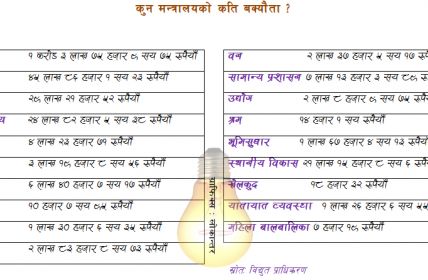 कुन मन्त्रालयको कति बक्यौता ?
१ करोड ३ लाख ७५ हजार ८ सय ७५ रुपैयाँ
४५ लाख ८६ हजार १ सय २३ रुपैयाँ
२८ लाख २१ हजार ५२ रुपैयाँ
य २४ लाख ८२ हजार ५ सय ३८ रुपैयाँ
४ लाख २३ हजार ७१ रुपैयाँ
३ लाख १८ हजार ८ सय ५६ रुपैयाँ
६ लाख ४० हजार ७ सय १७ रुपैयाँ
१० हजार ७ सय ७५ रुपैयाँ
१ लाख ३० हजार ६ सय ३५ रुपैयाँ
२ लाख ८३ हजार ८ सय ७३ रुपैयाँ
ग्राफिक्स : लोकान्तर
वन २ लाख ३७ हजार ५ सय १७ रु
सामान्य प्रशासन ७ लाख १३ हजार ३ सय ८८
उद्योग २ लाख ८ हजार ८ सय ७५
श्रम १४ हजार १ सय रुपैयाँ
भूमिसुधार १ लाख ६७ हजार ४ सय १३
स्थानीय विकास २१ लाख १५ हजार ८ सय ६
खेलकुद १८ हजार ३२ रुपैयाँ
यातायात व्यवस्था १ लाख २६ हजार ६ सय ५५
महिला बालबालिका ७ हजार १८ रुपैयाँ
स्रोतः विद्युत प्राधिकरण